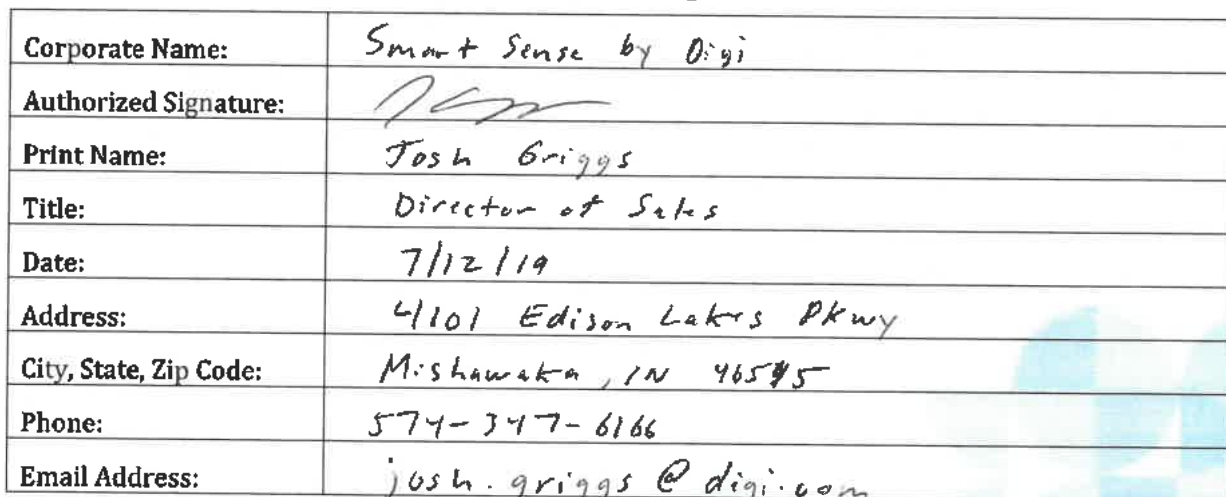 Corporate Name: Smart Sense by Digi
Authorized Signature:
Print Name: Josh Griggs
Title: Director of Sales
Date: 7/12/19
Address: 4101 Edison Lakes Pkwy
City, State, Zip Code: Mishawaka, IN 46545
Phone: 574-347-6166
Email Address: josh.griggs@digi.com